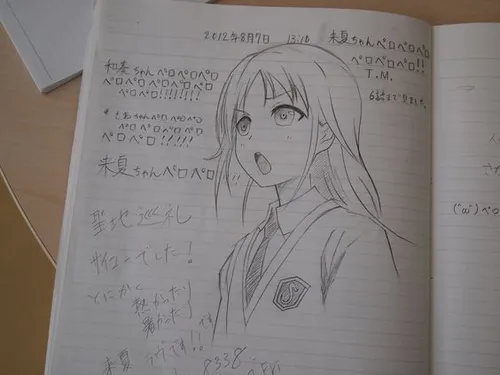 2012年8月7日 13:10
来夏ちゃんペロペロペロ
ペロペロペロ!!
T.M.
6話まで見ました。
和奏ちゃんペロペロペロ
ペロペロペロペロペロペロ
ペロペロ!!!!!!!!
ペロペロペロ
ペロペロペロペロ
ペロペロ!!!!!
来夏ちゃんペロペロ
!!
聖地巡礼
サイコーでした!
とにかく
熱かったり
暑かったり
です
来夏 ラヴです!!
8338
S
(^ω^)ペロ